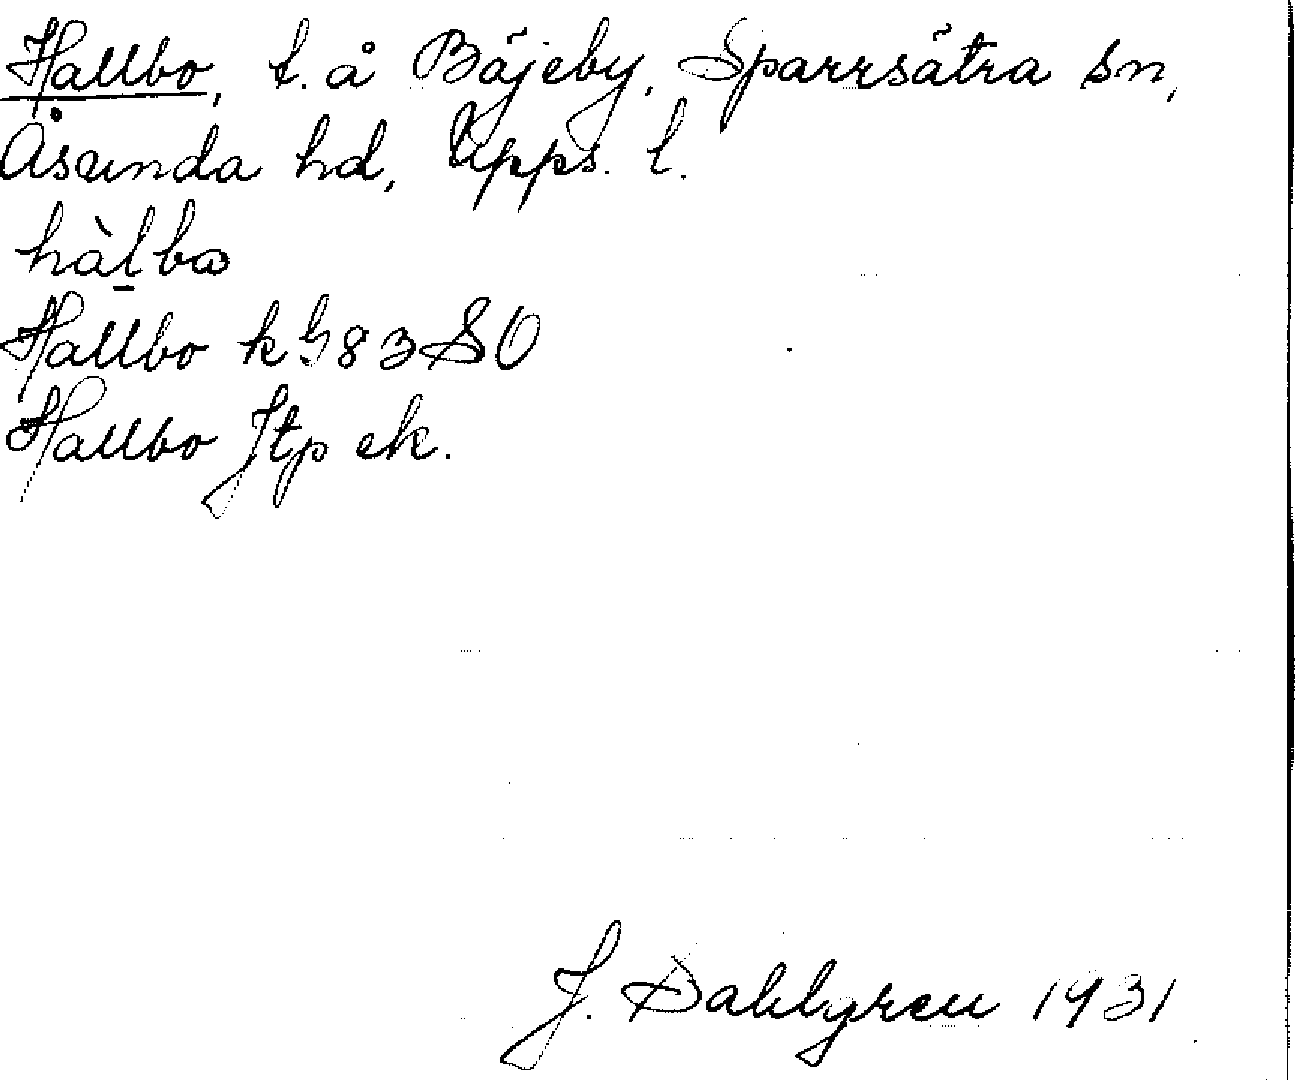 Hallbo, t. å Böjeby, Sparrsätra sn,
Åsunda hd, Upps. l.
hàl̠bꙍ
Hallbo k G 83 SO
Hallbo Jtp ek.
J. Dahlgren 1931